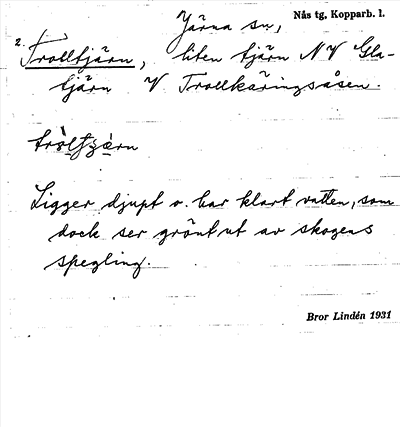 Järna sn,
Nås tg, Kopparb. l.
2.
Trolltjärn, liten tjärn NV Gla-
tjärn V Trollkäringsåsen.
Ligger djupt o. har klart vatten, som
dock ser grönt ut av skogens
spegling.
Bror Lindén 1931